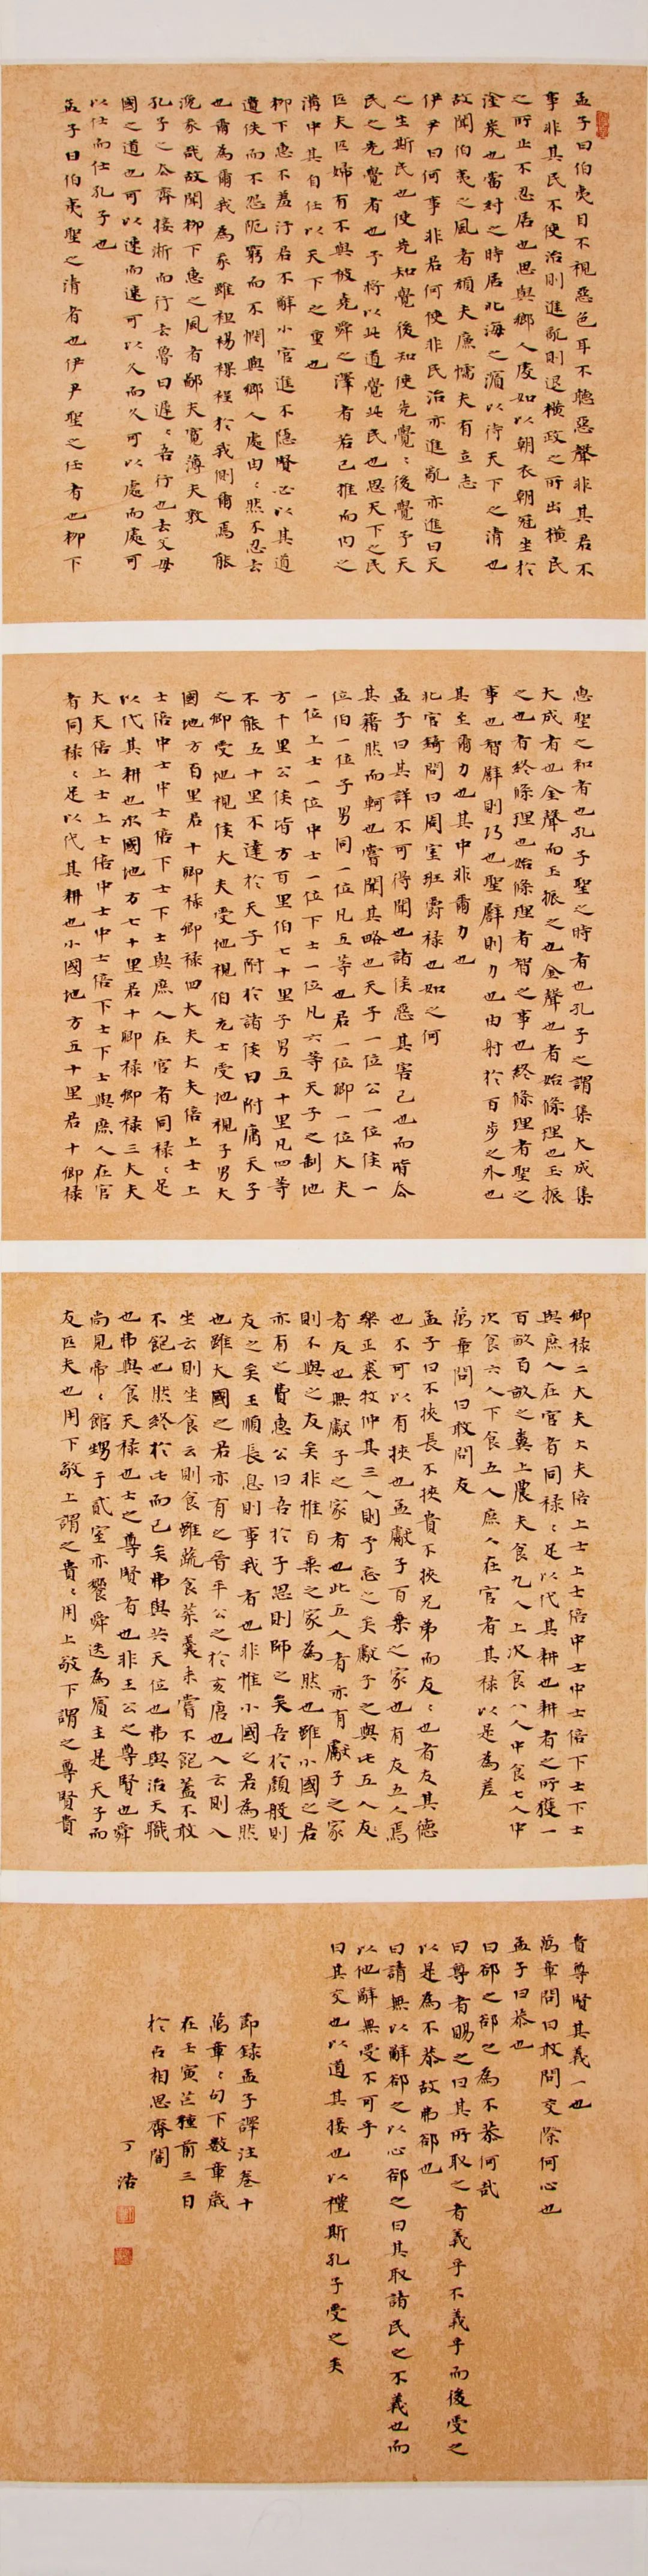 孟子曰伯夷目不視惡色耳不聽惡聲非其君不
事非其民不使治則進亂則退橫政之所出橫民
之所止不忍居也思與鄉人處如以朝衣朝冠坐於
塗炭也當紂之時居北海之濱以待天下之清也
故聞伯夷之風者頑夫廉懦夫有立志
伊尹曰何事非君何使非民治亦進亂亦進曰天
之生斯民也使先知覺後知使先覺〻後覺予天
民之先覺者也予將以此道覺此民也思天下之民
匹夫匹婦有不與被堯舜之澤者若己推而內之
溝中其自任以天下之重也
柳下惠不羞汙君不辭小官進不隱賢必以其道
遺佚而不怨阨窮而不憫與鄉人處由〻然不忍去
也爾為爾我為我雖袒裼裸裎於我側爾焉能
浼我哉故聞柳下惠之風者鄙夫寬薄夫敦
孔子之去齊接淅而行去魯曰遲〻吾行也去父母
國之道也可以速而速可以久而久可以處而處可
以仕而仕孔子也
孟子曰伯夷聖之清者也伊尹聖之任者也柳下
惠聖之和者也孔子聖之時者也孔子之謂集大成集
大成者也金聲而玉振之也金聲也者始條理也玉振
之也者終條理也始條理者智之事也終條理者聖之
事也智譬則巧也聖譬則力也由射於百步之外也
其至爾力也其中非爾力也
北宮錡問曰周室班爵祿也如之何
孟子曰其詳不可得聞也諸侯惡其害己也而皆去
其籍然而軻也嘗聞其略也天子一位公一位侯一
位伯一位子男同一位凡五等也君一位卿一位大夫
一位上士一位中士一位下士一位凡六等天子之制地
方千里公侯皆方百里伯七十里子男五十里凡四等
不能五十里不達於天子附於諸侯曰附庸天子
之卿受地視侯大夫受地視伯元士受地視子男大
國地方百里君十卿祿卿祿四大夫大夫倍上士上
士倍中士中士倍下士下士與庶人在官者同祿〻足
以代其耕也次國地方七十里君十卿祿卿祿三大夫
大夫倍上士上士倍中士中士倍下士下士與庶人在官
者同祿〻足以代其耕也小國地方五十里君十卿祿
卿祿二大夫大夫倍上士上士倍中士中士倍下士下士
與庶人在官者同祿〻足以代其耕也耕者之所獲一
百畝百畝之糞上農夫食九人上次食八人中食七人中
次食六人下食五人庶人在官者其祿以是為差
萬章問曰敢問友
孟子曰不挾長不挾貴不挾兄弟而友〻也者友其德
也不可以有挾也孟獻子百乘之家也有友五人焉
樂正裘牧仲其三人則予忘之矣獻子之與此五人友
者友也無獻子之家者也此五人者亦有獻子之家
則不與之友矣非惟百乘之家為然也雖小國之君
亦有之費惠公曰吾於子思則師之矣吾於顏般則
友之矣王順長息則事我者也非惟小國之君為然
也雖大國之君亦有之晉平公之於亥唐也入云則入
坐云則坐食云則食雖蔬食菜羹未嘗不飽蓋不敢
不飽也然終於此而已矣弗與共天位也弗與治天職
也弗與食天祿也士之尊賢者也非王公之尊賢也舜
尚見帝〻館甥于貳室亦饗舜迭為賓主是天子而
友匹夫也用下敬上謂之貴〻用上敬下謂之尊賢貴
貴尊賢其義一也
萬章問曰敢問交際何心也
孟子曰恭也
曰卻之卻之為不恭何哉
曰尊者賜之曰其所取之者義乎不義乎而後受之
以是為不恭故弗卻也
曰請無以辭卻之以心卻之曰其取諸民之不義也而
以他辭無受不可乎
曰其交也以道其接也以禮斯孔子受之矣
節錄孟子譯注卷十
萬章〻句下數章歲
在壬寅芒種前三日
於古相思齋闇
丁浩